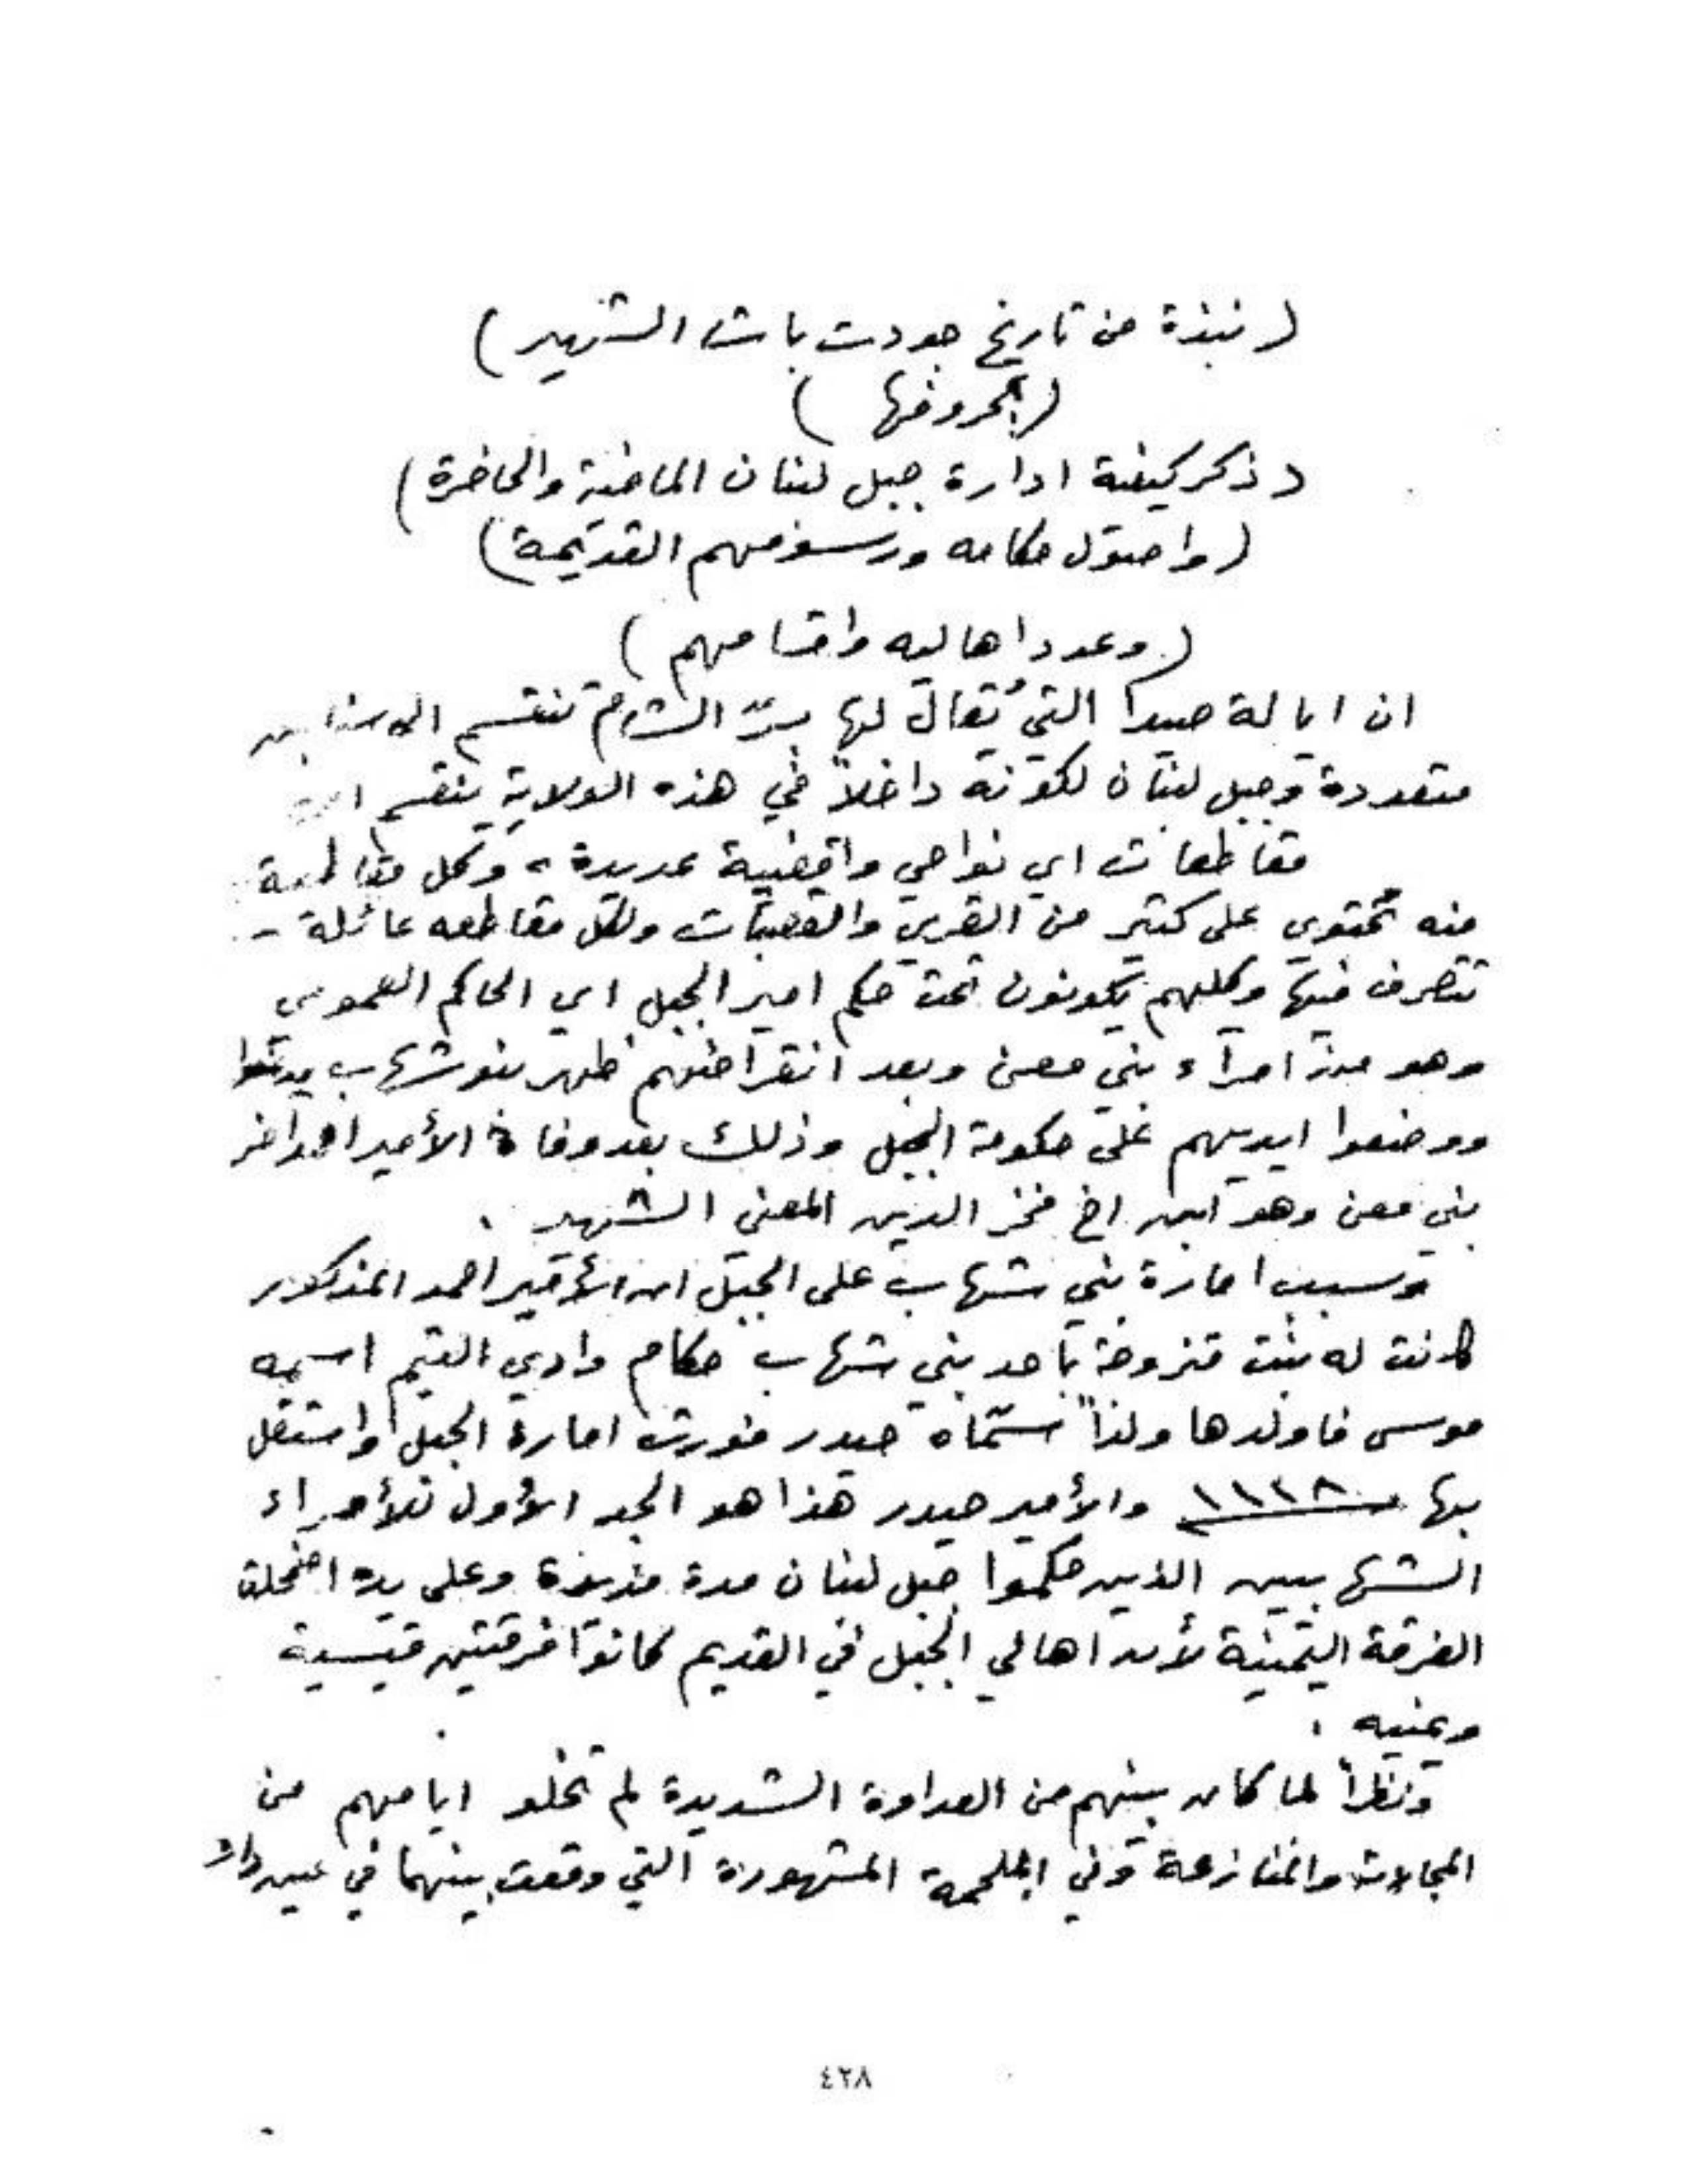 (نبذة من تاريخ جودت باشا الشهير)
(بحروفها)
(ذكر كيفية ادارة جبل لبنان الماضية والحاضرة)
(واصول حكامه ورسومهم القديمة)
(وعدد اهاليه واقسامهم)
ان ايالة صيدا التي يُقال لها برّ الشام تنقسم الى
متعددة وجبل لبنان لكونه داخلاً في هذه الولاية ينقسم
مقاطعات اي نواحي واقضية عديدة، وكل مقاطعة
منه تحتوي على كثير من القرى والقصبات ولكل مقاطعه عائلة -
تتصرف فيها وكلهم يكونون تحت حكم امير الجبل اي الحاكم العمومي
وهو من امرآء بني معن وبعد انقراضهم ظهر بنو شهاب
ووضعوا ايديهم على حكومة الجبل وذلك بعد وفاة الأمير احمد اخر
بني معن وهو ابن اخ فخر الدين المعني الشهير.
وسبب امارة بني شهاب على الجبل ان الأمير احمد المذكور
كانت له بنت متزوجة باحد بني شهاب حكام وادي التيم اسمه
موسى فاولدها ولداً سمّاه حيدر فورث امارة الجبل واستقل
بها والأمير حيدر هذا هو الجد الأول للأمراء
الشهابيين الذين حكموا جبل لبنان مدة مديدة وعلى يده اضمحلت
الفرقة اليمنية لأن اهالي الجبل في القديم كانوا فرقتين قيسية
ويمنيه.
ونظراً لما كان بينهم من العداوة الشديدة لم تخلو ايامهم من
والمنازعة وفي الملحمة المشهورة التي وقعت بينهما في عين دارا
٤٢٨